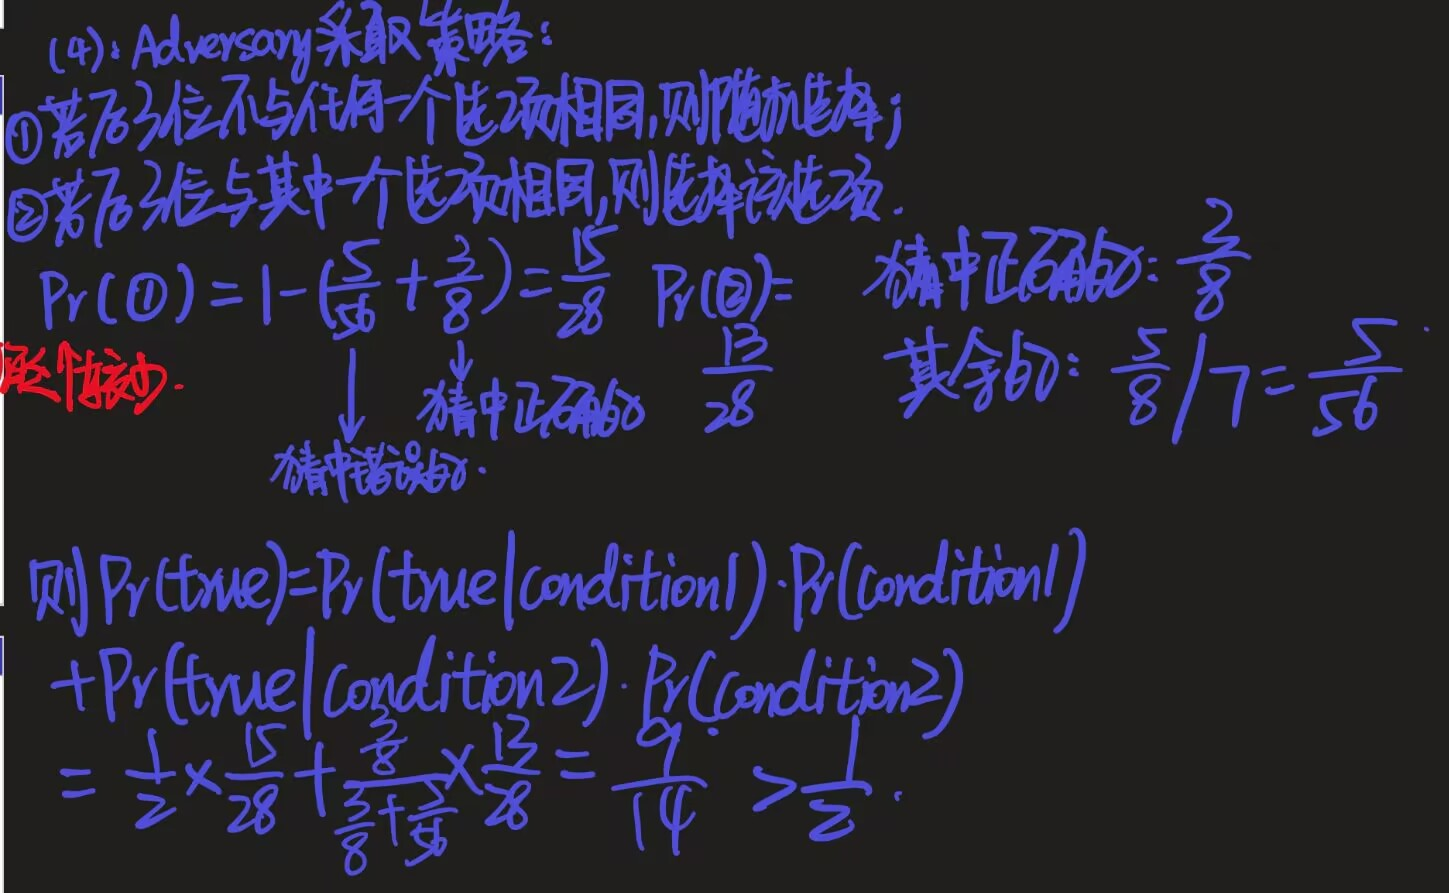 (4): Adversary采取策略:
①若后3位不与任何一个选项相同,则随机选择;
②若后3位与其中一个选项相同,则选择该选项.
Pr(①) = 1-(5/56 + 3/8) = 15/28 Pr(②)= 13/28
猜中正确的: 3/8
其余的: 5/8/7=5/56
较少.
猜中正确的
猜中错误的.
则Pr(true)=Pr(true|condition1)·Pr(condition1)
+Pr(true|condition2)·Pr(condition2)
= 1/2 × 15/28 + (3/8)/(3/8+5/56) × 13/28 = 9/14 > 1/2.